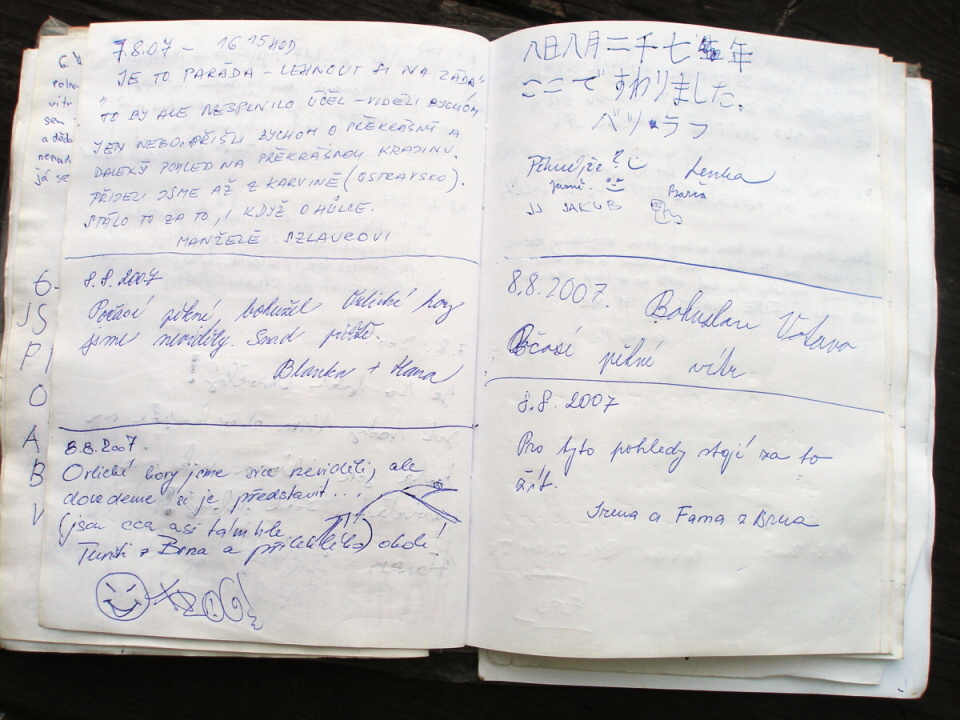 7.8.07 - 16 15 HOD
JE TO PARÁDA - LEHNOUT SI NA ZÁDA"
"TO BY ALE NESPLNILO ÚČEL - VIDĚLI BYCHOM
JEN NEBO. PŘIŠLI BYCHOM O PŘEKRÁSNÝ A
DALEKÝ POHLED NA PŘEKRÁSNOU KRAJINU.
PŘIJELI JSME AŽ Z KARVINÉ (OSTRAVSKO).
STÁLO TO ZA TO, I KDYŽ O HŮLCE.
MANŽELÉ SZLAUROVI
8.8.2007
Počasí pěkné, bohužel Orlické hory
jsme neviděly. Snad příště.
Blanka + Hana
8.8.2007.
Orlické hory jsme sice neviděli, ale
dovedeme si je představit...
(jsou cca asi támhle
Turisti z Brna a přilehlého okolí!
6.
polna
vítr
sem
a
já se
6-
JS
PI
O
A
B
V
八日八月二千七年
ここですわりました。
ベツ・ラフ
Lenka
Barča
JJ JAKUB
8.8.2007.
Bohuslav
Počasí pěkné vítr
8.8.2007
Pro tyto pohledy stojí za to
žít.
Irena a Fama z Brna